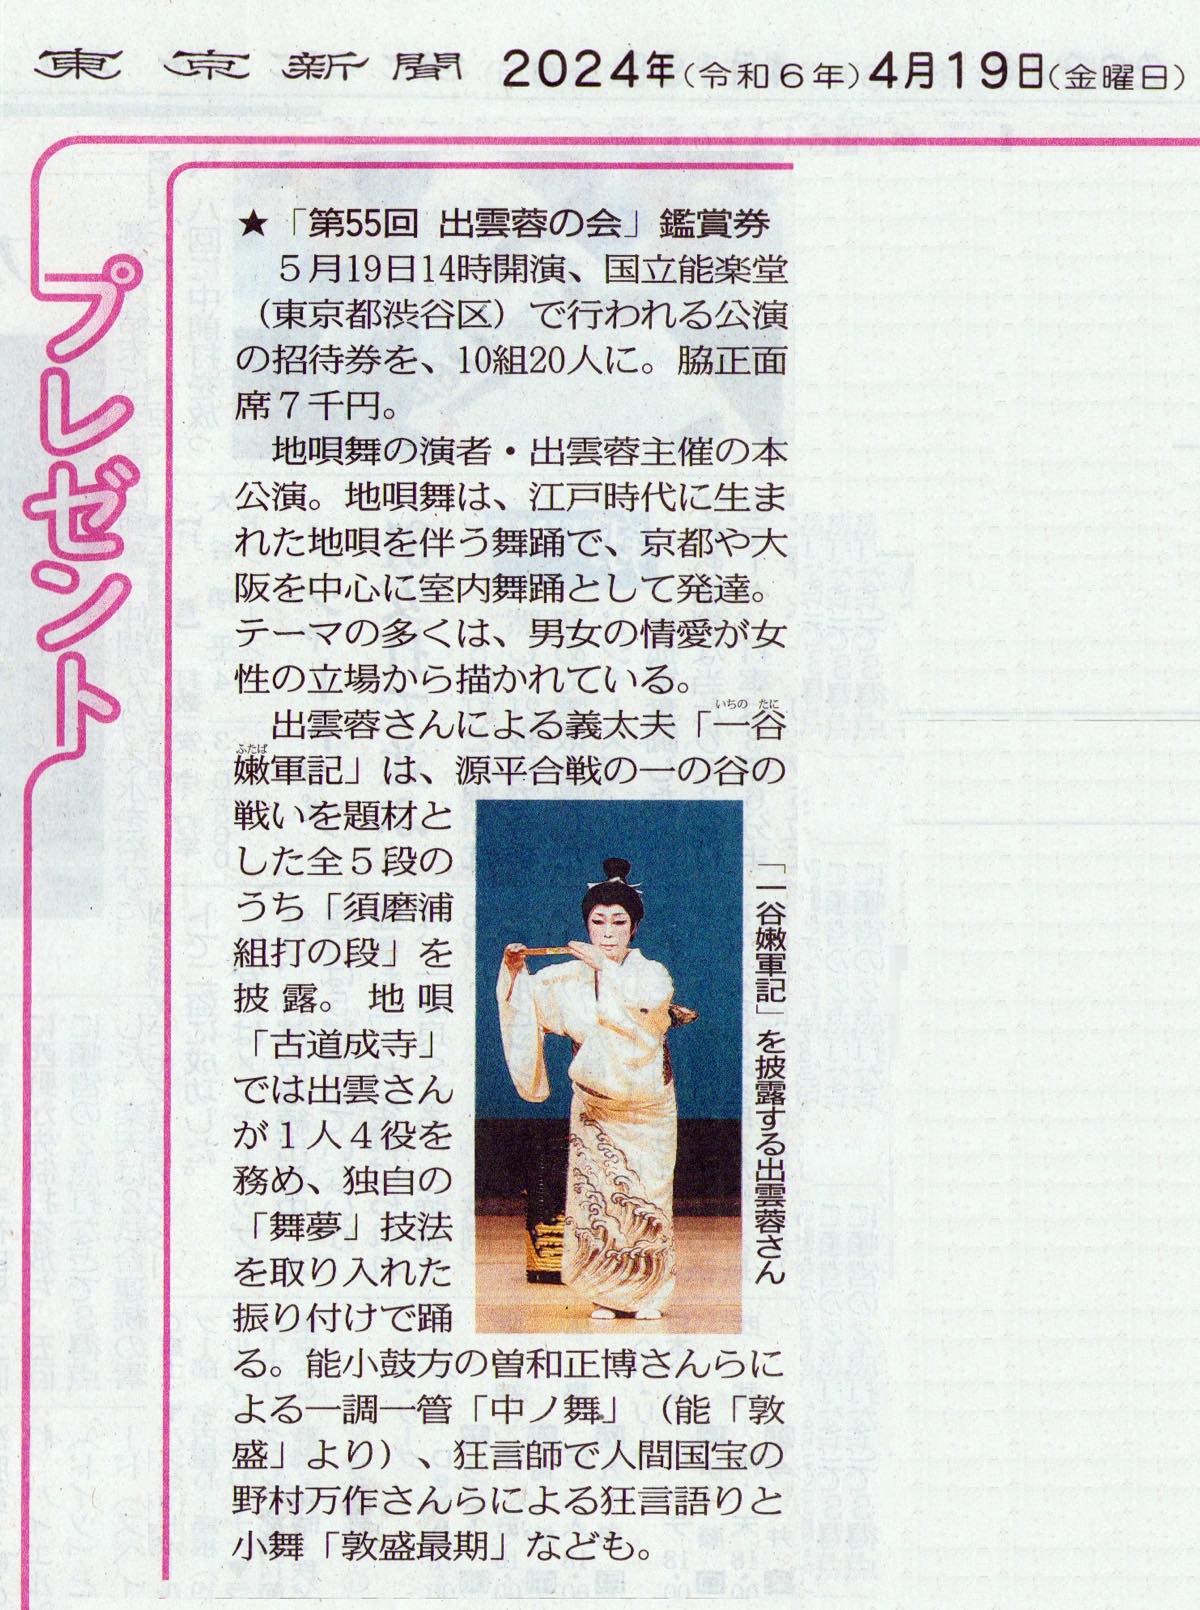 東京新聞 2024年(令和6年)4月19日(金曜日)
プレゼント
★「第55回 出雲蓉の会」鑑賞券
５月19日14時開演、国立能楽堂
（東京都渋谷区）で行われる公演
の招待券を、10組20人に。脇正面
席７千円。
地唄舞の演者・出雲蓉主催の本
公演。地唄舞は、江戸時代に生ま
れた地唄を伴う舞踊で、京都や大
阪を中心に室内舞踊として発達。
テーマの多くは、男女の情愛が女
性の立場から描かれている。
いちの たに
出雲蓉さんによる義太夫「一谷
ふたば
嫩軍記」は、源平合戦の一の谷の
戦いを題材と
した全５段の
うち「須磨浦
組打の段」を
披露。地唄
「古道成寺」
では出雲さん
が１人４役を
務め、独自の
「舞夢」技法
を取り入れた
振り付けで踊
る。能小鼓方の曽和正博さんらに
よる一調一管「中ノ舞」（能「敦
盛」より）、狂言師で人間国宝の
野村万作さんらによる狂言語りと
小舞「敦盛最期」なども。
「一谷嫩軍記」を披露する出雲蓉さん